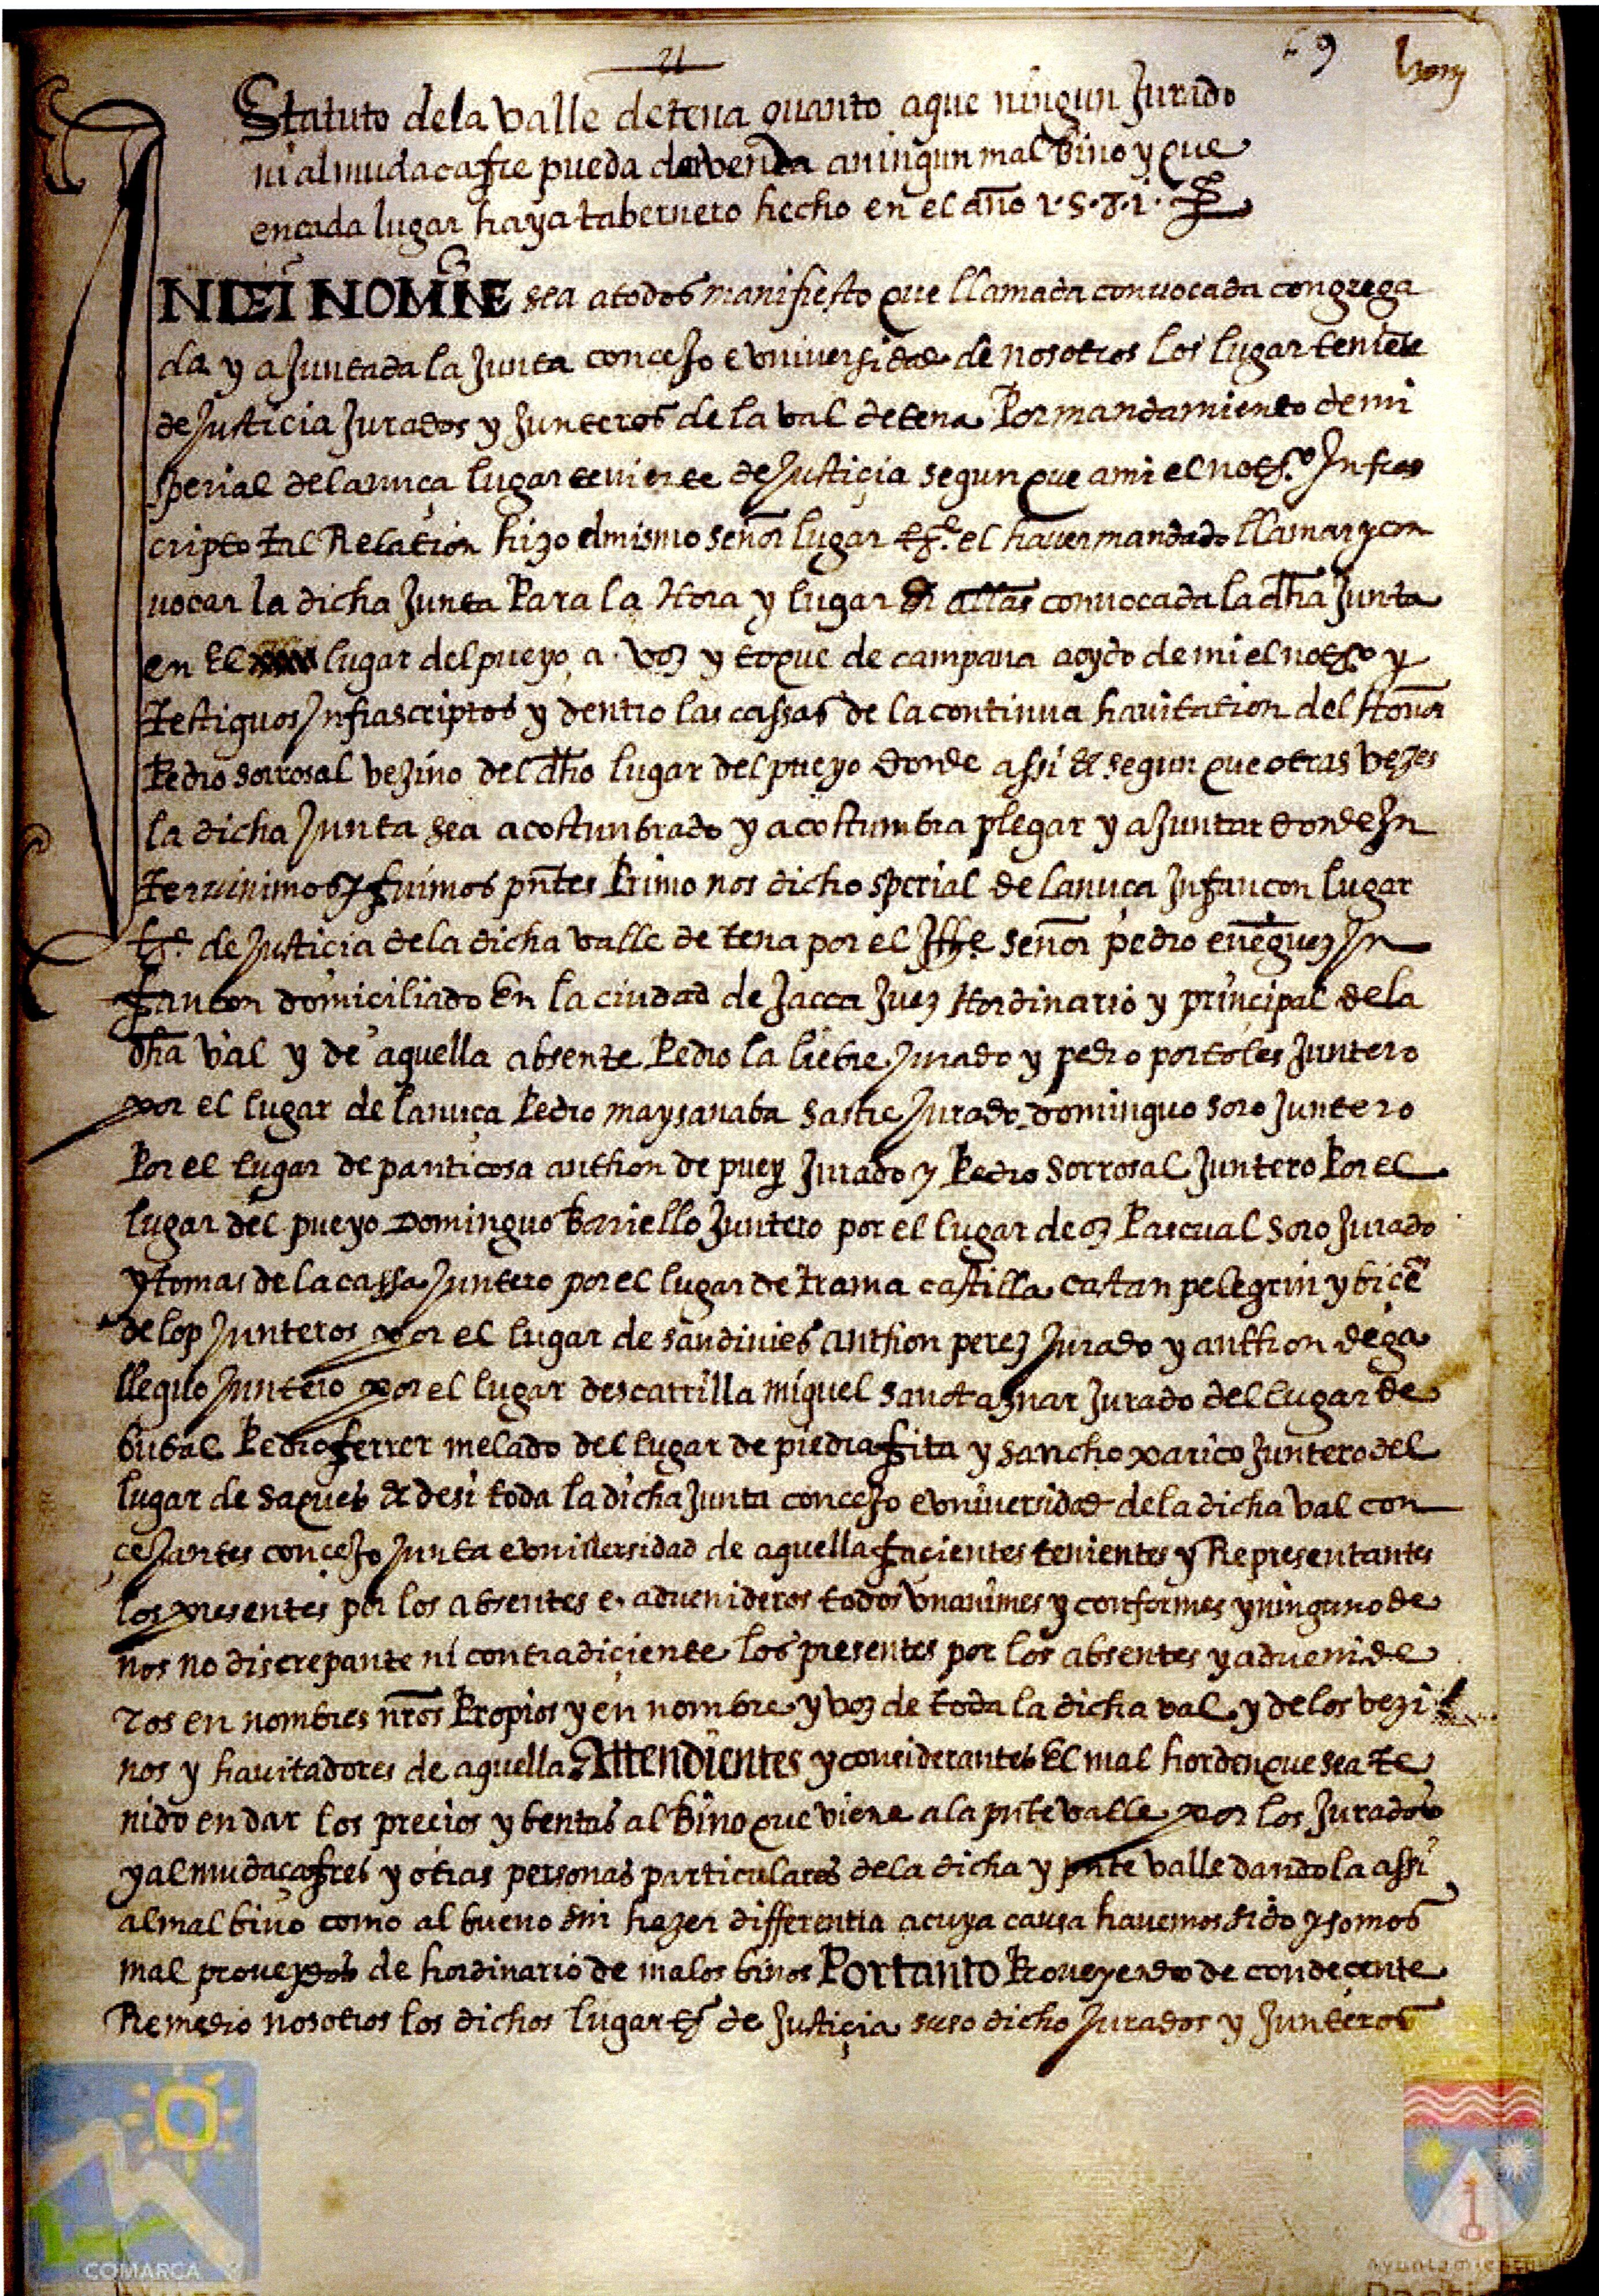 21
69
Statuto dela valle detena quanto aque ningun Jurado
ni almudacafre pueda dar venda aningun mal bino y que
encada lugar haya tabernero hecho en el año 1·5·8·1·
IN DEI NOMINE sea atodos manifiesto que llamada convocada congrega
da y aJuntada la Junta conceJo e vniversidad de nosotros los lugar teniente
de Justicia Jurados y Junteros de la val de tena Por mandamiento de mi
sperial de lanuça lugar teniente de Justiçia segun que ami el notº Infras
cripto tal Relation hizo el mismo señor lugar tte. el haver mandado llamar y con
uocar la dicha Junta Para la Hora y lugar convocada la dha Junta
en El lugar del pueyo a voz y toque de campana aoydo de mi el notº y
Testiguos Infrascriptos y dentro las cassas de la continua hauitation del Honor
Pedro sorrosal vezino del dho lugar del pueyo donde assi et segun que otras vezes
la dicha Junta sea acostunbrado y acostumbra plegar y aJuntar donde In
teruinimos y fuimos pntes Primo nos dicho sperial de Lanuça Infançon lugar
tte. de Justiçia dela dicha valle de tena por el señor pedro eneguez In
fançon domiciliado En la ciudad de Jacca Juez Hordinario y principal de la
dha val y de aquella absente Pedro la liebre Jurado y pedro portoles Juntero
por el lugar de lanuça Pedro maysanaba sastre Jurado dominguo soro Juntero
Por el lugar de panticosa anthon de puey Jurado y Pedro sorrosal Juntero Por el
lugar del pueyo Dominguo Bariello Juntero por el lugar de oz Pascual soro Jurado
y tomas de la cassa Juntero por el lugar de trama castilla castan pelegrin y biçe
de lop Junteros por el lugar de sandinies anthon perez Jurado y anthon de ga
lleguo Juntero por el lugar descarrilla miguel sanctaznar Jurado del lugar de
bubal Pedro ferrer melado del lugar de piedrafita y sancho xarico Juntero del
lugar de saques et desi toda la dicha Junta conceJo e vniversidad de la dicha val con
çeJantes conceJo Junta e vniuersidad de aquella façientes tenientes y Representantes
los presentes por los absentes e aduenideros todos vnanimes y conformes y ninguno de
nos no discrepante ni contradiçiente los presentes por los absentes y aduenide
ros en nombres nros Propios y en nombre y voz de toda la dicha val y de los vezi
nos y hauitadores de aquella Attendientes y considerantes El mal horden que sea te
nido en dar los precios y bentas al bino que viene a la pnte valle por los Jurados
y almudaçafres y otras personas particulares de la dicha y pnte valle dandola assi
al mal bino como al bueno sin hazer differentia a cuya causa hauemos sido y somos
mal proueydos de hordinario de malos binos Portanto Proveyendo de condeçente
Remedio nosotros los dichos lugar tte de Justiçia suso dicho Jurados y Junteros
COMARCA
Ayuntamiento